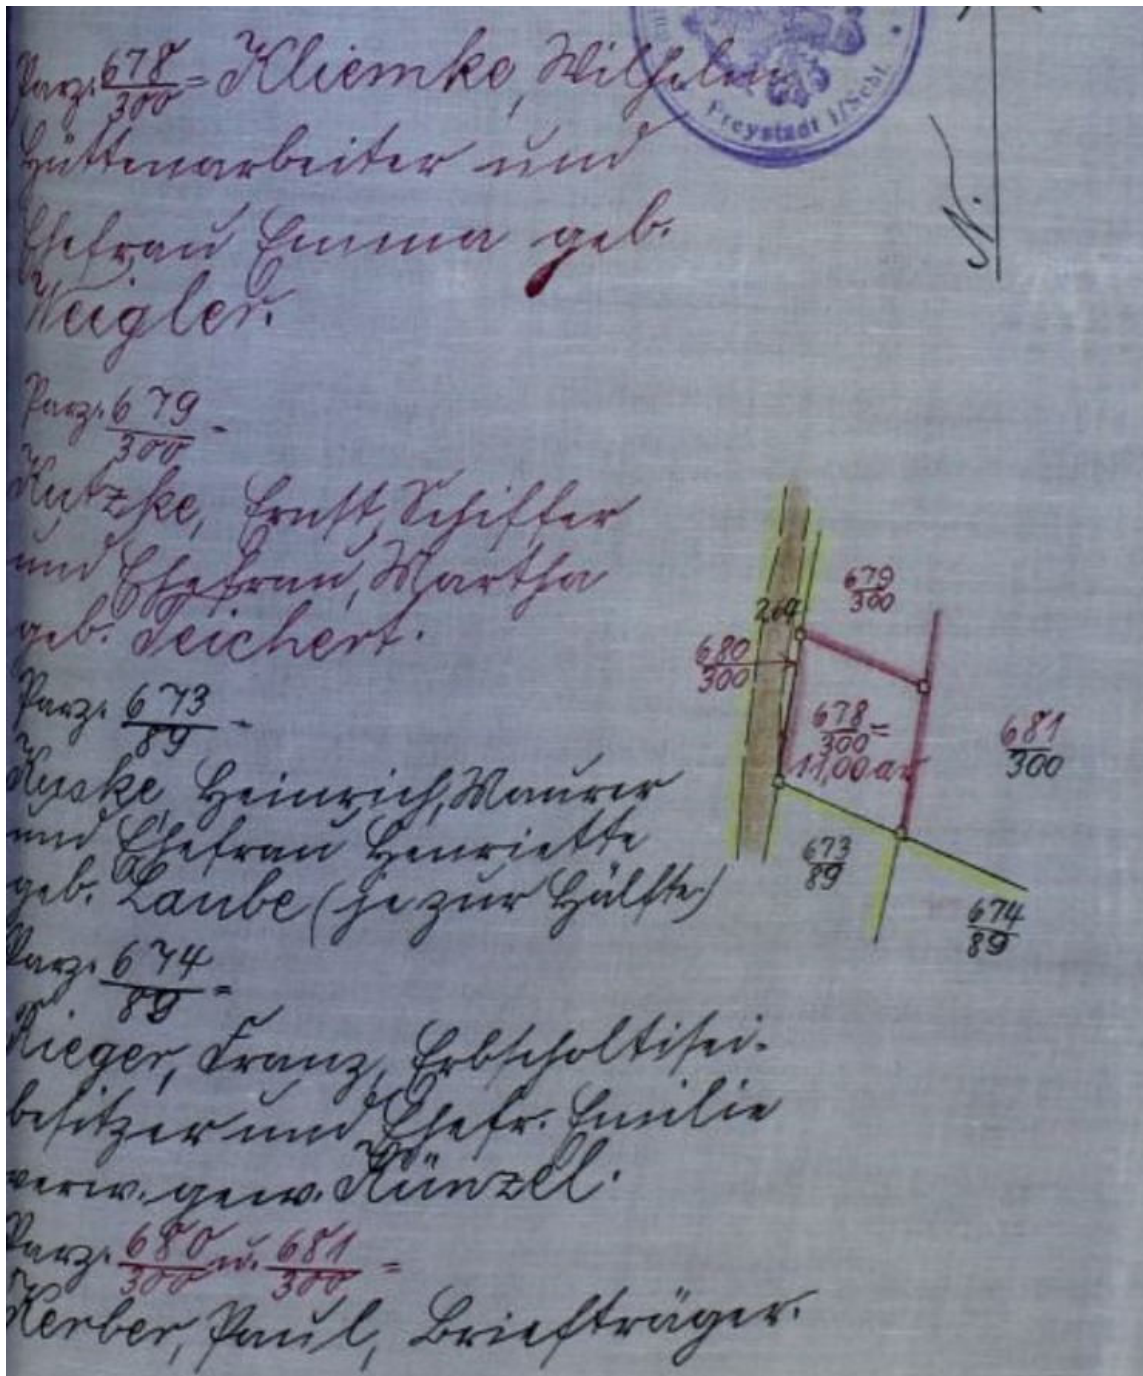 Parz. 678/300 = Kliemke, Wilhelm
Hüttenarbeiter und
Ehefrau Emma geb.
Weigler.
Freystadt i/Schl.
N.
Parz. 679/300 =
Kutzke, Ernst, Schiffer
und Ehefrau, Martha
geb. Teichert.
Parz. 673/89 =
Heinrich, Maurer
und Ehefrau Henriette
geb. Laube (je zur Hälfte)
Parz. 674/89 =
Rieger, Franz, Erbscholtisei-
besitzer und Ehefr. Emilie
verw. gew. Künzel.
Parz. 680/300 u. 681/300 =
Kerber, Paul, Briefträger.
679/300
269
680/300
678/300 =
11,00 ar
681/300
673/89
674/89